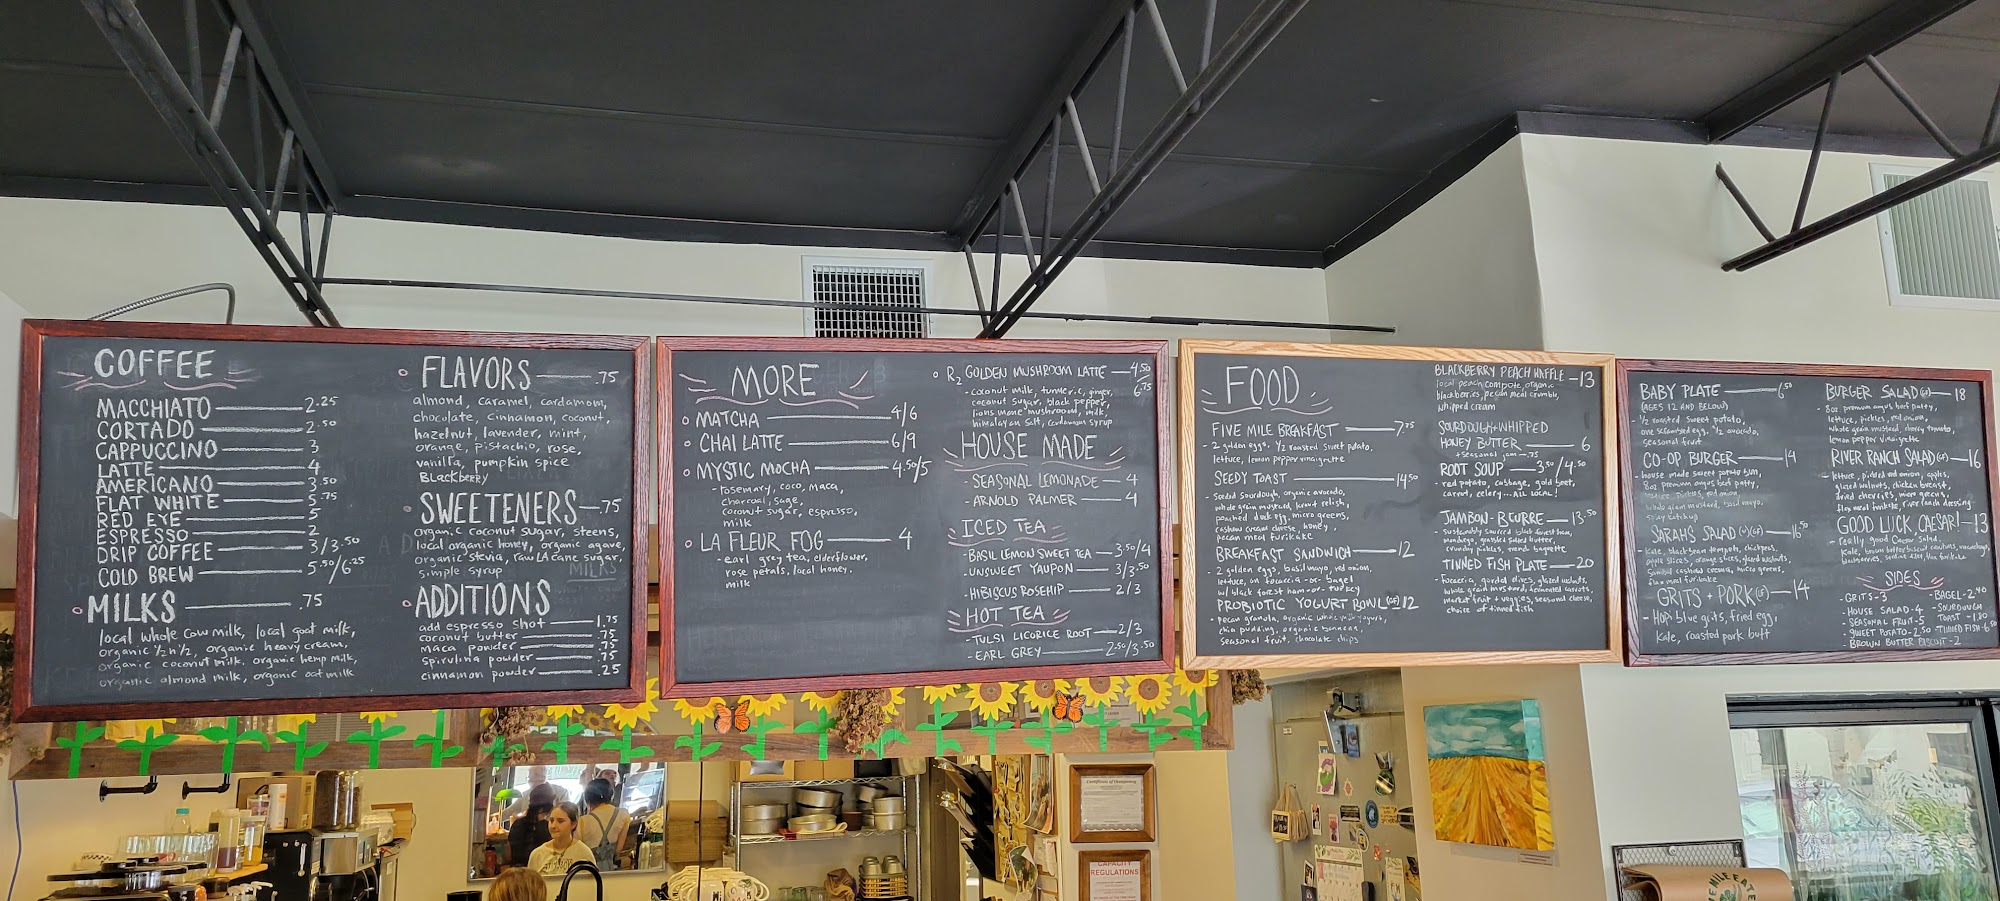 COFFEE
MACCHIATO 2.25
CORTADO 2.50
CAPPUCCINO 3
LATTE 4
AMERICANO 3.50
FLAT WHITE 5.75
RED EYE 5
ESPRESSO 2
DRIP COFFEE 3/3.50
COLD BREW 5.50/6.25
MILKS .75
local whole cow milk, local goat milk,
organic ½ n ½, organic heavy cream,
organic coconut milk, organic hemp milk,
organic almond milk, organic oat milk
FLAVORS .75
almond, caramel, cardamom,
chocolate, cinnamon, coconut,
hazelnut, lavender, mint,
orange, pistachio, rose,
vanilla, pumpkin spice
Blackberry
SWEETENERS .75
organic coconut sugar, steens,
local organic honey, organic agave,
organic stevia, raw LA cane sugar,
simple syrup
ADDITIONS
add espresso shot 1.75
coconut butter .75
maca powder .75
spirulina powder .75
cinnamon powder .25
MORE
MATCHA 4/6
CHAI LATTE 6/9
MYSTIC MOCHA 4.50/5
- rosemary, coco, maca,
charcoal, sage,
coconut sugar, espresso,
milk
LA FLEUR FOG 4
- earl grey tea, elderflower,
rose petals, local honey.
milk
R2 GOLDEN MUSHROOM LATTE 4.50
6.75
- coconut milk, turmeric, ginger,
coconut sugar, black pepper,
lions mane mushroom, milk,
himalayan salt, cardamom syrup
HOUSE MADE
- SEASONAL LEMONADE 4
- ARNOLD PALMER 4
ICED TEA
- BASIL LEMON SWEET TEA 3.50/4
- UNSWEET YAUPON 3/3.50
- HIBISCUS ROSEHIP 2/3
HOT TEA
- TULSI LICORICE ROOT 2/3
- EARL GREY 2.50/3.50
FOOD
FIVE MILE BREAKFAST 7.75
- 2 golden eggs, ½ roasted sweet potato,
lettuce, lemon pepper vinaigrette
SEEDY TOAST 14.50
- seeded sourdough, organic avocado,
whole grain mustard, kraut relish,
poached duck egg, micro greens,
cashew cream cheese, honey,
pecan meal furikake
BREAKFAST SANDWICH 12
- 2 golden eggs, basil mayo, red onion,
lettuce, on focaccia -or- bagel
w/ black forest ham -or- turkey
PROBIOTIC YOGURT BOWL (GF) 12
- pecan granola, organic whole milk yogurt,
chia pudding, organic bananas,
seasonal fruit, chocolate chips
BLACKBERRY PEACH WAFFLE -13
local peach compote, organic
blackberries, pecan meal crumble,
whipped cream
SOURDOUGH + WHIPPED
HONEY BUTTER 6
+ seasonal jam -.75
ROOT SOUP 3.50/4.50
- red potato, cabbage, gold beet,
carrot, celery... ALL LOCAL!
JAMBON-BEURRE 13.50
- sustainably sourced black forest ham,
grassfed salted butter,
crunchy pickles, french baguette
TINNED FISH PLATE 20
- focaccia, gordal olives, glazed walnuts,
whole grain mustard, fermented carrots,
market fruit + veggies, seasonal cheese,
choice of tinned fish
BABY PLATE 6.50
(AGES 12 AND BELOW)
- ½ roasted sweet potato,
one scrambled egg, ½ avocado,
seasonal fruit
CO-OP BURGER 14
- house made sweet potato bun,
8oz premium angus beef patty,
lettuce, pickles, red onion,
whole grain mustard, basil mayo,
spicy ketchup
SARAH'S SALAD (V)(GF) 16.50
- kale, black bean tempeh, chickpeas,
apple slices, orange slices, glazed walnuts,
cashew crema, micro greens,
flax meal furikake
GRITS + PORK (GF) 14
- Hopi blue grits, fried egg,
kale, roasted pork butt
BURGER SALAD (GF) 18
- 8oz premium angus beef patty,
lettuce, pickles, red onion,
whole grain mustard, cherry tomato,
lemon pepper vinaigrette
RIVER RANCH SALAD (GF) 16
- lettuce, pickled red onion, apples,
glazed walnuts, chicken breast,
dried cherries, micro greens,
flax meal furikake, river ranch dressing
GOOD LUCK, CAESAR! 13
- Really good Caesar Salad.
Kale, brown butter biscuit croutons,
SIDES
- GRITS - 3
- HOUSE SALAD - 4
- SEASONAL FRUIT - 5
- SWEET POTATO - 2.50
- BROWN BUTTER BISCUIT - 2
- BAGEL - 2.40
- SOURDOUGH
TOAST - 1.80
- TINNED FISH - 6.50
Certificate of Occupancy
CAPACITY
REGULATIONS